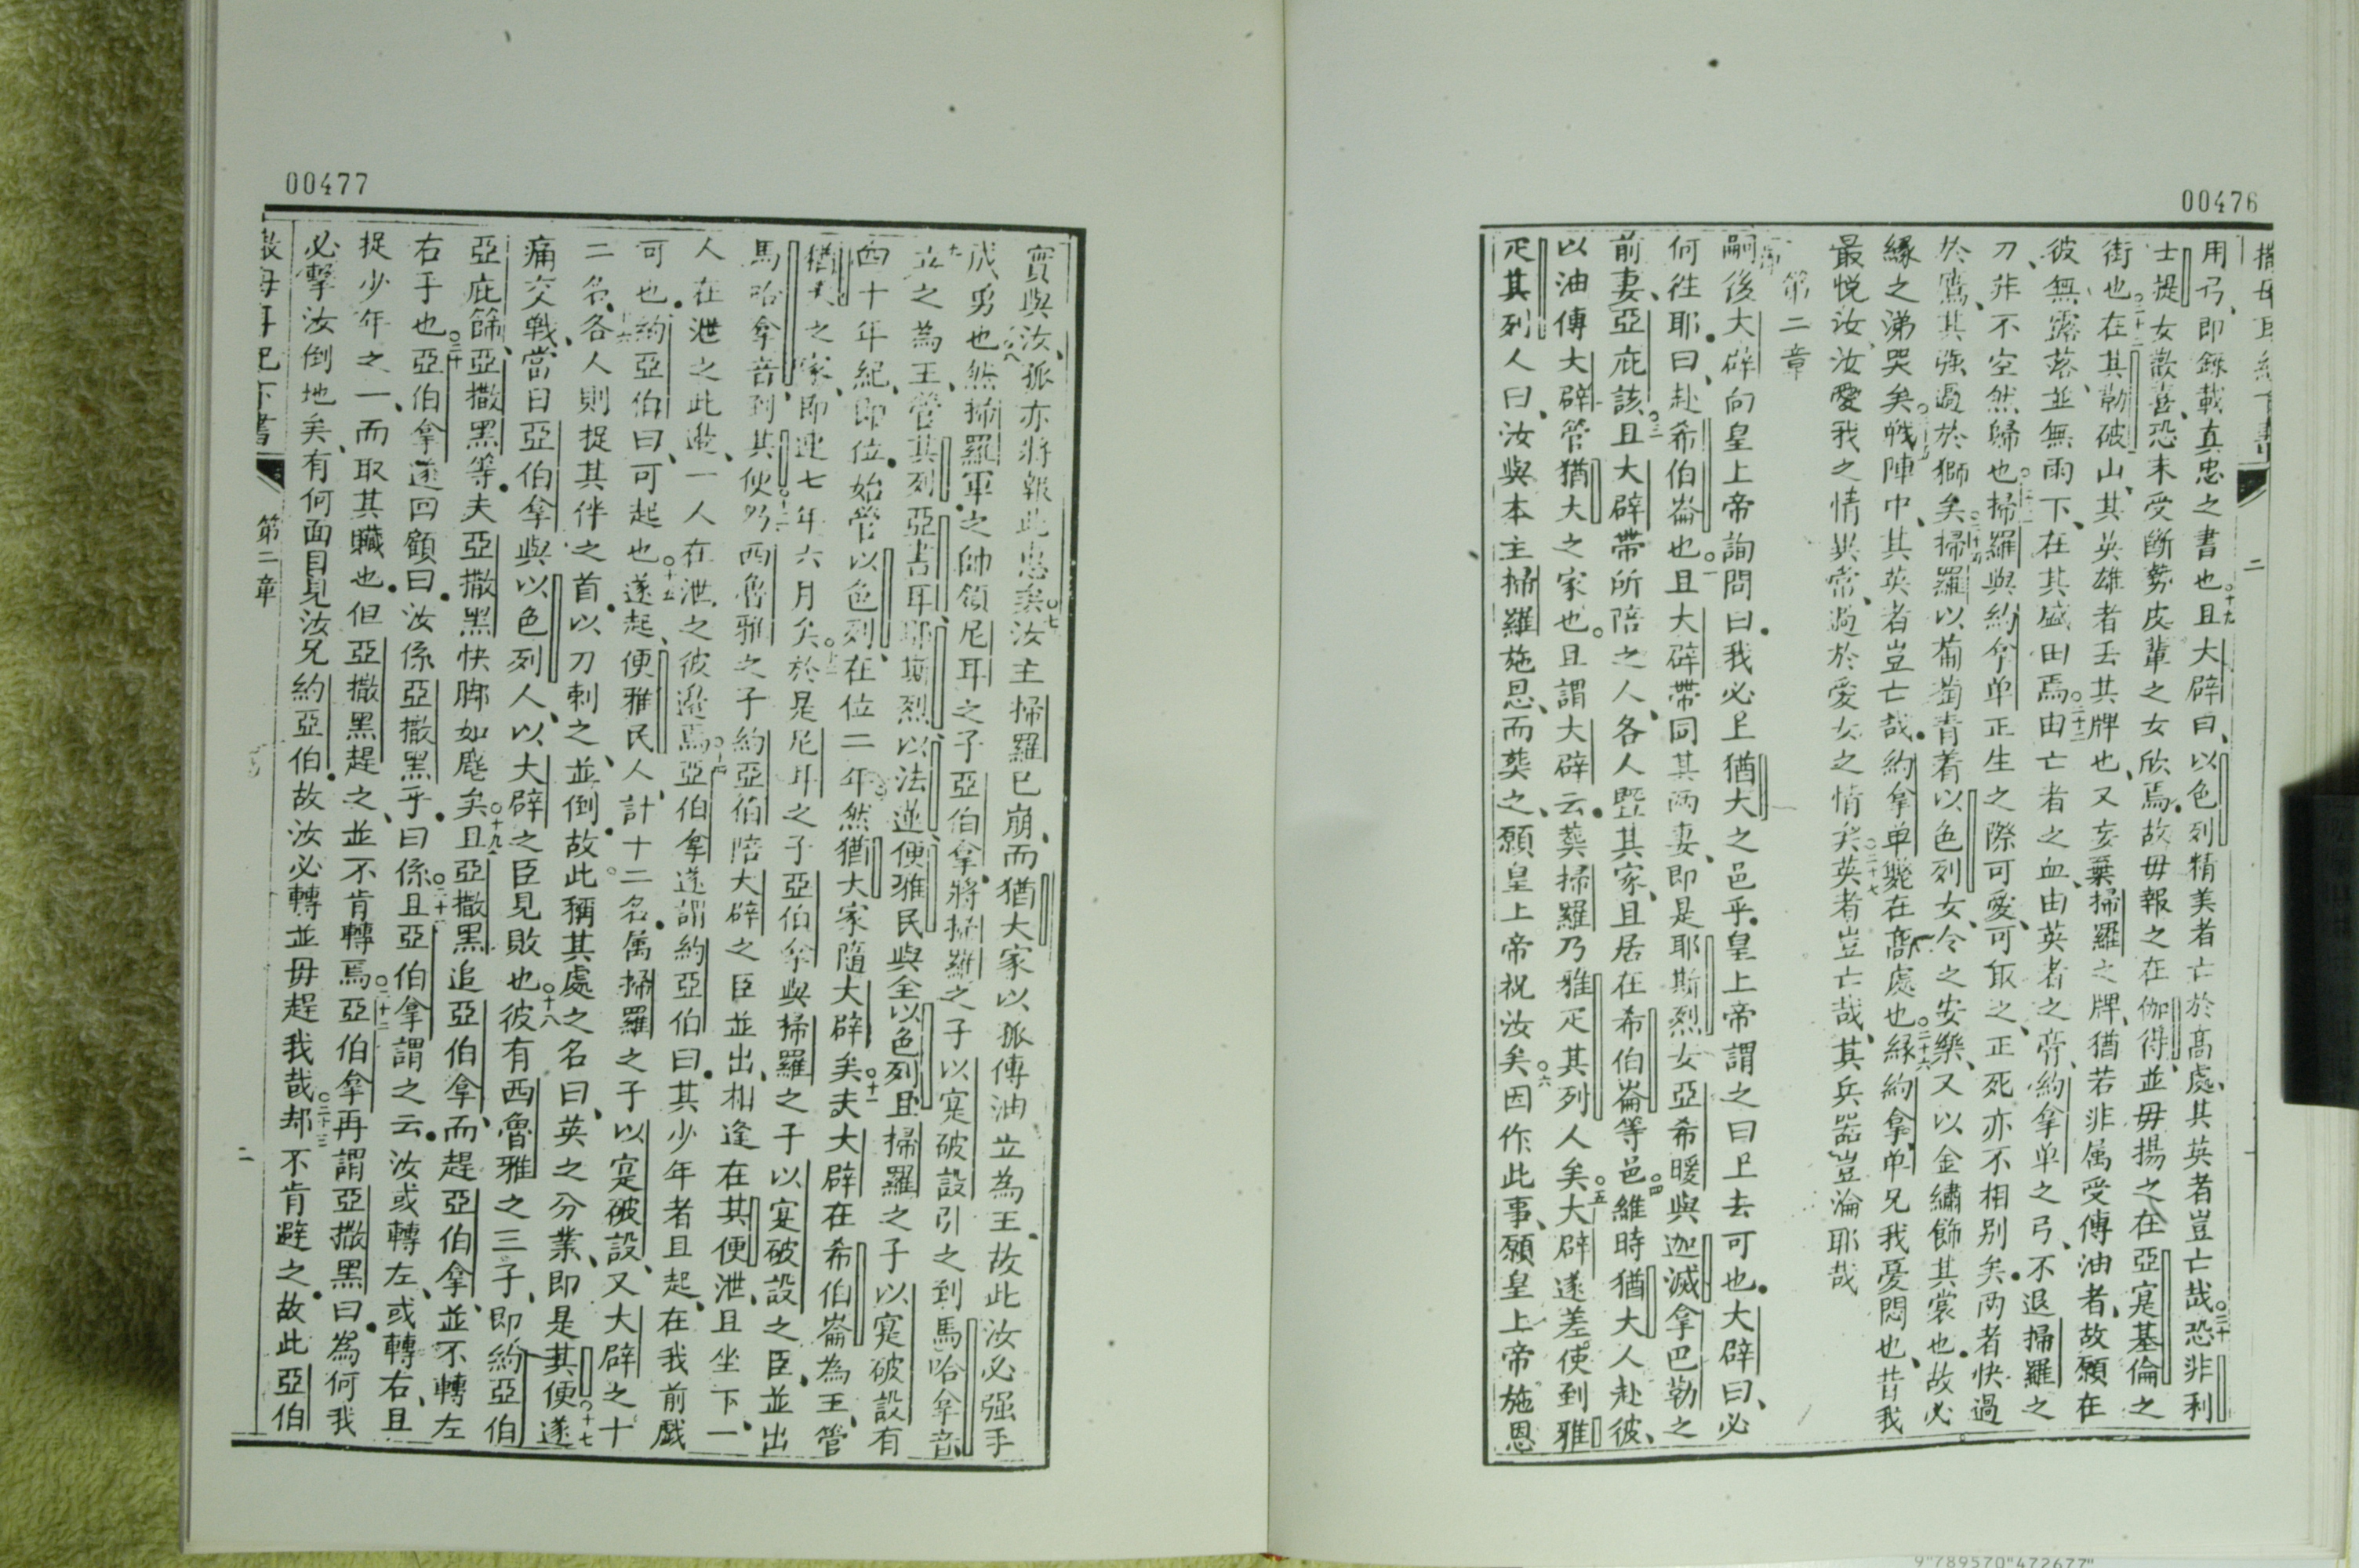 00476
二
用弓、即錄載真忠之書也。十九且大辟曰、以色列精美者亡於髙處、其英者豈亡哉。二十恐非利
士提女歡喜、恐未受斷勢皮輩之女欣焉。故毋報之在伽得、並毋揚之在亞寔基倫之
街也。二十一在其勒破山、其英雄者丟其牌也、又妄棄掃羅之牌、猶若非属受傳油者、故願在
彼無露落、並無雨下、在其盛田焉。二十二由亡者之血、由英者之膏、約拿单之弓、不退掃羅之
刀、非不空然歸也。掃羅與約拿单正生之際可愛、可取之、正死亦不相别矣。两者快過
於鷹、其强過於獅矣。二十四掃羅以葡萄青着以色列女、令之安樂、又以金繡飾其裳也。故必
緣之涕哭矣。戰陣中、其英者豈亡哉。約拿单斃在髙處也。二十六緣約拿单兄我憂悶也、昔我
最悦汝、汝愛我之情異常、過於愛女之情矣。二十七英者豈亡哉、其兵器豈淪耶哉
第二章
嗣後大辟向皇上帝詢問曰。我必上猶大之邑乎。皇上帝謂之曰上去可也。大辟曰、必
何徃耶。曰、赴希伯崙也。二且大辟帶同其两妻、即是耶斯烈女亞希暖與迦滅拿巴勒之
前妻、亞庇該。三且大辟帶所陪之人、各人曁其家、且居在希伯崙等邑。四維時猶大人赴彼、
以油傳大辟管猶大之家也。且謂大辟云。葬掃羅乃雅疋其列人矣。五大辟遂差使到雅
疋其列人曰、汝與本主掃羅施恩、而葬之、願皇上帝祝汝矣。六因作此事、願皇上帝施恩
00477
實與汝、孤亦將報此惠矣。七汝主掃羅已崩、而猶大家以孤傳油立為王。故此汝必强手
成勇也。八然掃羅軍之帥領尼耳之子亞伯拿、將掃羅之子以寔破設引之到馬哈拿音
立之為王、管其列、亞書耳、耶斯烈、以法蓮、便雅民與全以色列。且掃羅之子以寔破設有
四十年紀、即位。始管以色列、在位二年。然猶大家隨大辟矣。十一夫大辟在希伯崙為王、管
猶大之家、即連七年六月矣。十二於是尼耳之子亞伯拿與掃羅之子以寔破設之臣、並出
馬哈拿音到其便。十三乃西魯雅之子約亞伯陪大辟之臣並出、相逢在其便泄、且坐下、一
人在泄之此邊、一人在泄之彼邊焉。十四亞伯拿遂謂約亞伯曰。其少年者且起、在我前戲
可也。約亞伯曰、可起也。十五遂起、便雅民人、計十二名。属掃羅之子以寔破設、又大辟之十
二名。十六各人則捉其伴之首。以刀刺之、並倒。故此稱其處之名曰、英之分業、即是其便。十七遂
痛交戰、當日亞伯拿與以色列人、以大辟之臣見敗也。十八彼有西魯雅之三子、即約亞伯
亞庇篩、亞撒黑等。夫亞撒黑快脚如麀矣。十九且亞撒黑追亞伯拿、而趕亞伯拿、並不轉左
右手也。二十亞伯拿遂回顧曰。汝係亞撒黑乎。曰係。二十一且亞伯拿謂之云。汝或轉左、或轉右、且
捉少年之一、而取其贓也。但亞撒黑趕之、並不肯轉焉。二十二亞伯拿再謂亞撒黑曰。為何我
必擊汝倒地矣、有何面目見汝兄約亞伯。故汝必轉並毋趕我哉。二十三却不肯避之。故此亞伯
第二章
二